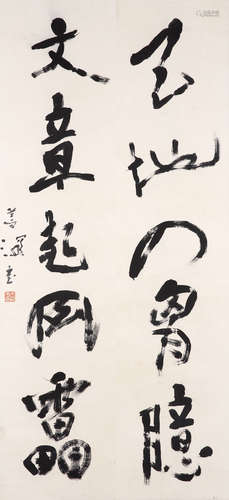 天地入胸臆
文章起風雷